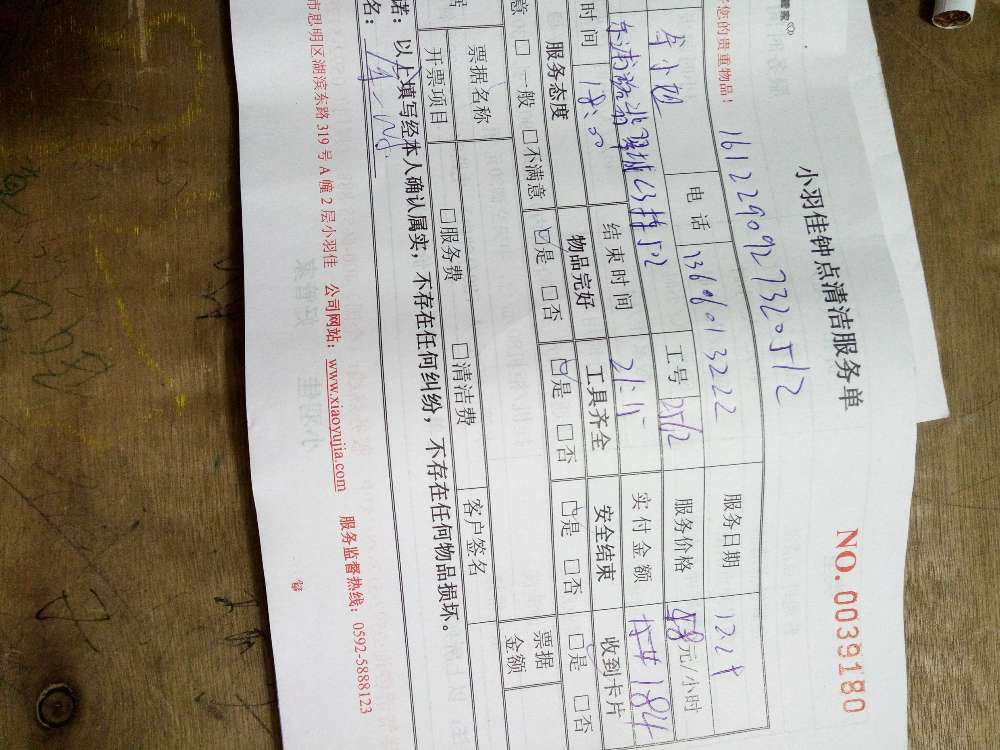 管家
小羽佳钟点清洁服务单
NO. 0039180
您的贵重物品！
1612290927320512
电话 13606013222 服务日期 12.29
工号 2512 服务价格 元/小时
时间 18:00 结束时间 21:15 实付金额 184
服务态度 物品完好 工具齐全 安全结束 收到卡片
意 □ 一般 □不满意 □是 □否 □是 □否 □是 □否 □是 □否
票据名称 客户签名 票据金额
开票项目 □服务费 □清洁费
诺：以上填写经本人确认属实，不存在任何纠纷，不存在任何物品损坏。
名：
市思明区湖滨东路319号A幢2层小羽佳 公司网站：www.xiaoyujia.com 服务监督热线：0592-5888123